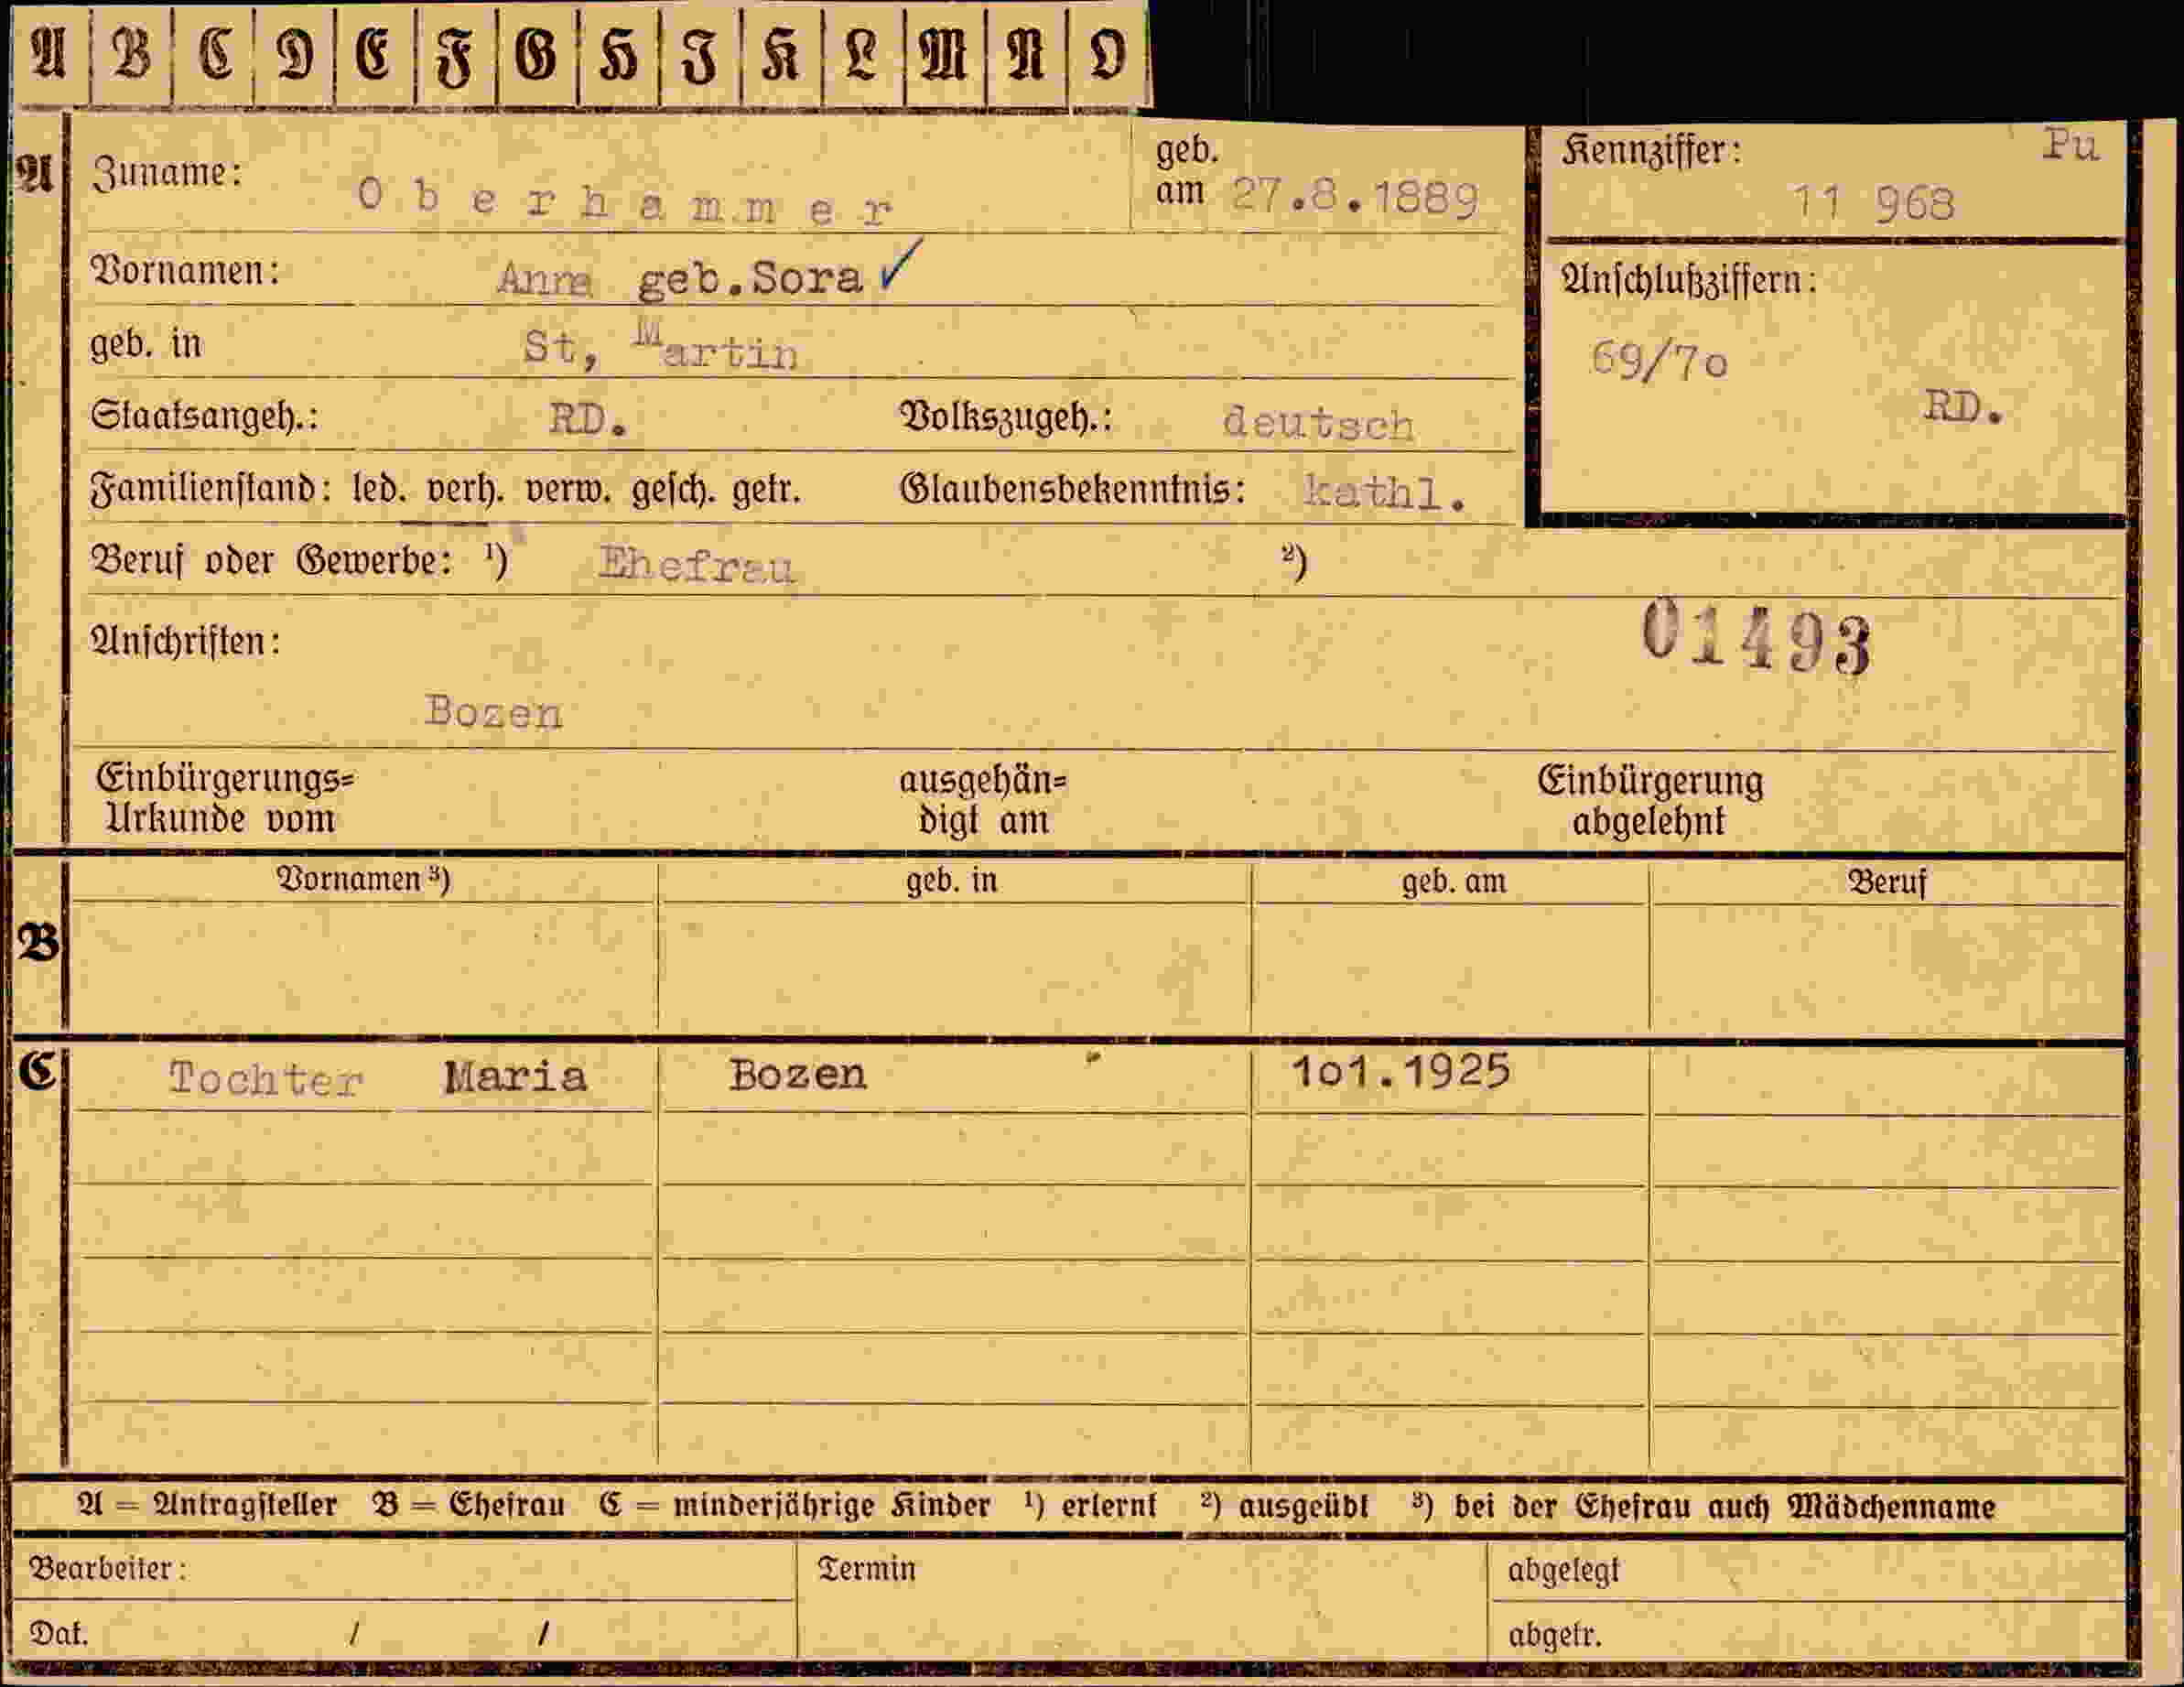 A B C D E F G H I K L M N O
A Zuname: Oberhammer geb. am 27.8.1889 Kennziffer: Pu
11 968
Vornamen: Anna geb.Sora ✓ Anschlußziffern:
geb. in St, Martin 69/7o
Staatsangeh.: RD. Volkszugeh.: deutsch RD.
Familienstand: led. verh. verw. gesch. getr. Glaubensbekenntnis: kathl.
Beruf oder Gewerbe: ¹) Ehefrau ²)
Anschriften: 01493
Bozen
Einbürgerungs= ausgehän= Einbürgerung
Urkunde vom digt am abgelehnt
Vornamen ³) geb. in geb. am Beruf
B
C Tochter Maria Bozen 1o1.1925
A = Antragsteller B = Ehefrau C = minderjährige Kinder ¹) erlernt ²) ausgeübt ³) bei der Ehefrau auch Mädchenname
Bearbeiter: Termin abgelegt
Dat. / / abgetr.